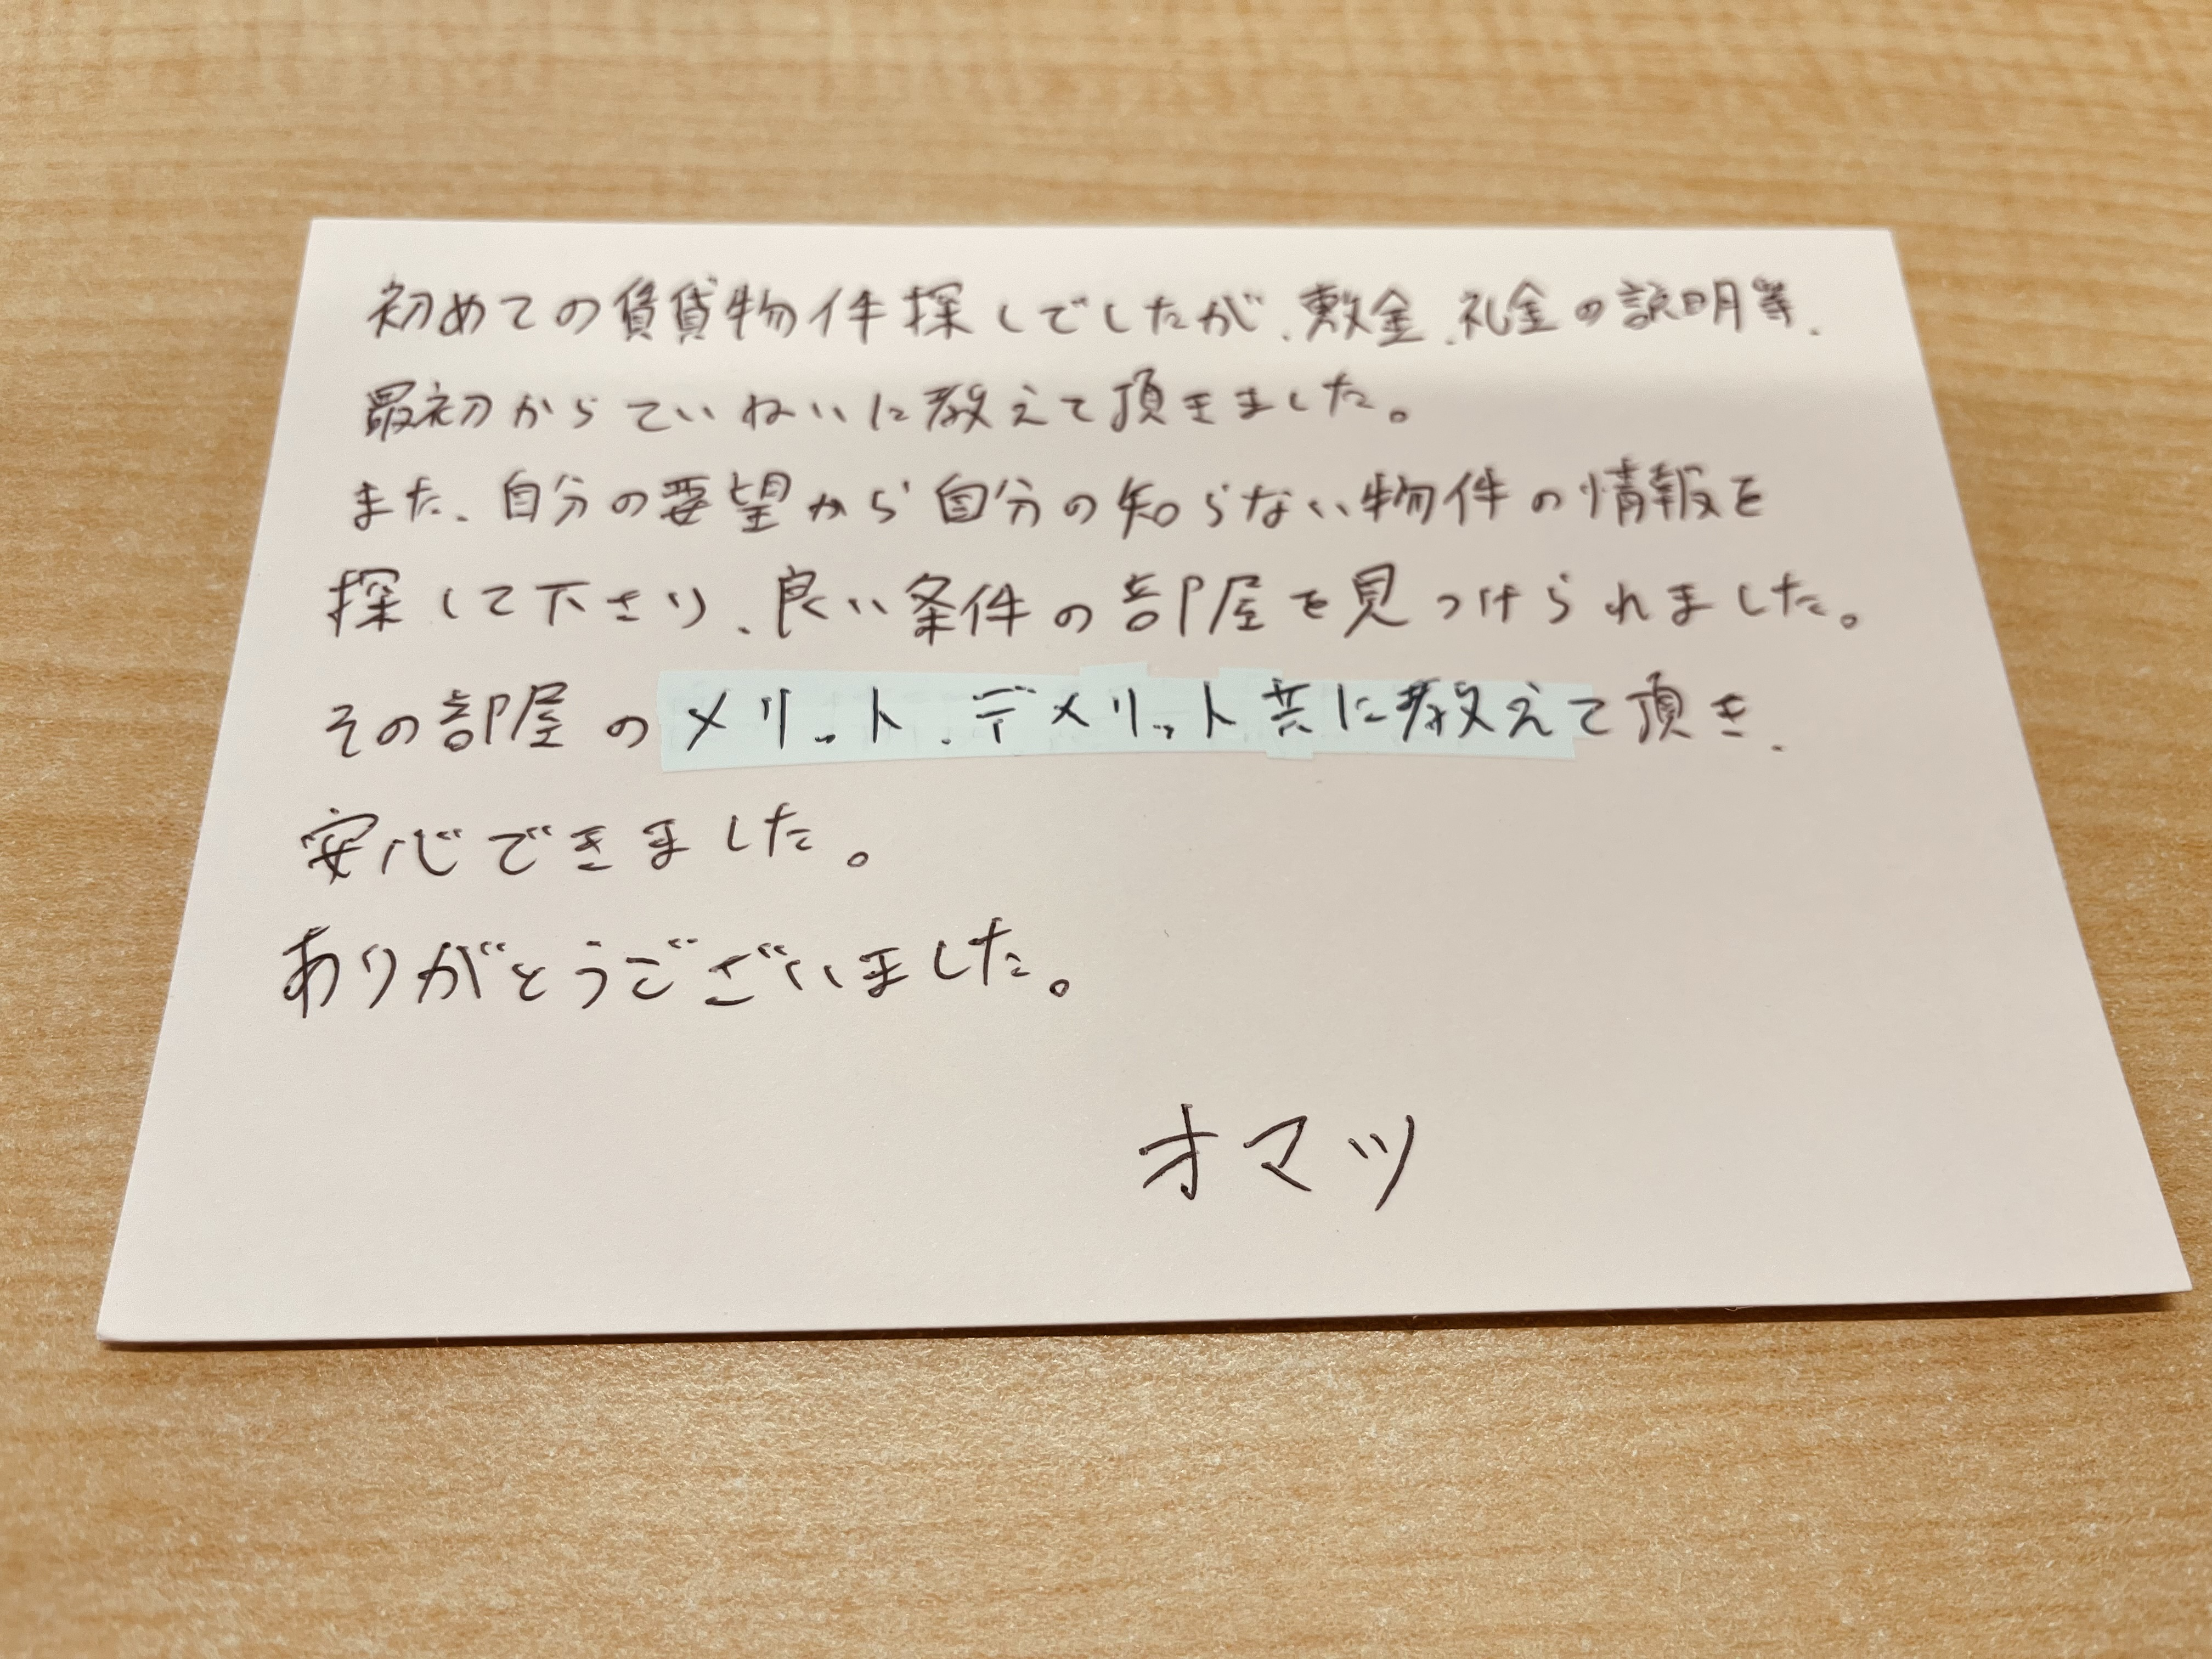 初めての賃貸物件探しでしたが、敷金、礼金の説明等、
最初からていねいに教えて頂きました。
また、自分の要望から自分の知らない物件の情報を
探して下さり、良い条件の部屋を見つけられました。
その部屋のメリット、デメリット共に教えて頂き、
安心できました。
ありがとうございました。
オマツ